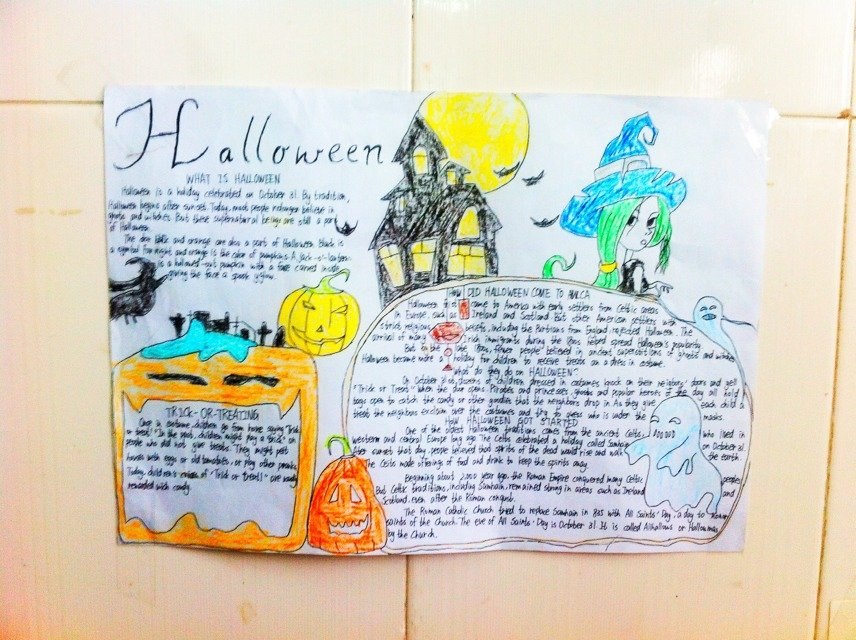 Halloween
WHAT IS HALLOWEEN
Halloween is a holiday celebrated on October 31. By tradition,
Halloween begins after sunset. Today, most people no longer believe in
ghosts and witches. But these supernatural beings are still a part
of Halloween.
The and orange are also a part of Halloween. Black is
a symbol for night and orange is the color of pumpkins. A jack-o'-lantern
is a hollowed-out pumpkin with a face carved inside
giving the face a spooky glow.
TRICK-OR-TREATING
Once in costume, children go from home saying "Trick
or treat!" In the past, children might play a trick on
people who did not give treats. They might pelt
houses with eggs or old tomatoes, or play other pranks.
Today, children's of "Trick or treat!" are usually
rewarded with candy.
HOW DID HALLOWEEN COME TO
Halloween first came to America with early settlers from Celtic areas
in Europe, such as Ireland and Scotland. But other American settlers with
strict religious beliefs, including the from England rejected Halloween. The
arrival of many Irish immigrants during the 1800s helped spread Halloween's popularity.
But in the late 1800s, fewer people believed in ancient superstitions of ghosts and witches.
Halloween became more a holiday for children to receive treats and dress in costume.
What do they do on HALLOWEEN?
On October 31, dozens of children dressed in costumes knock on their neighbors' doors and yell
"Trick or Treat" when the door opens. Pirates and princesses, ghosts and popular heroes of the day all hold
bags open to catch the candy or other goodies that the neighbors drop in. As they give each child a
treat the neighbors exclaim over the costumes and try to guess who is under the masks.
HOW HALLOWEEN GOT STARTED
One of the oldest Halloween traditions comes from the ancient Celts, who lived in
western and central Europe long ago. The Celts celebrated a holiday called on October 31.
After sunset that day, people believed that spirits of the dead would rise and walk the earth.
The Celts made offerings of food and drink to keep the spirits away.
Beginning about 2,000 years ago, the Roman Empire conquered many Celtic peoples
But Celtic traditions, including Samhain, remained strong in areas such as Ireland and
Scotland, even after the Roman conquest.
The Roman Catholic Church tried to replace Samhain in 835 with All Saints' Day, a day to honor
saints of the Church. The eve of All Saints' Day is October 31. It is called Allhallows or
by the Church.